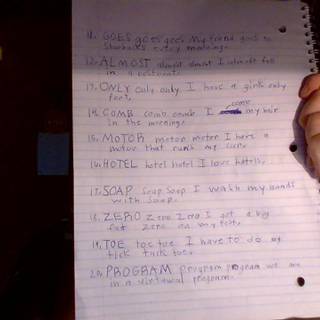 11. GOES goes goes My friend goes to
Starbucks every morning.
12. ALMOST almost almost I almost fell
in a restorant.
13. ONLY only only I have a girls only
14. COMB comb comb I comb my hair
in the morning.
15. MOTOR motor motor I have a
motor that runs my
16. HOTEL hotel hotel I love hotels.
17. SOAP soap soap I wash my hands
with soap.
18. ZERO zero zero I got a big
fat zero on my test.
19. TOE toe toe I have to do
tick tack toe.
20. PROGRAM program program we are
in a program.